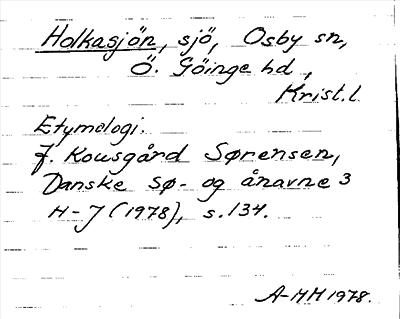 Holkasjön, sjö, Osby sn,
Ö. Göinge hd,
Krist.l.
Etymologi.
J. Kousgård Sørensen,
Danske sø- og ånavne 3
H-J (1978), s.134.
A-HH 1978.